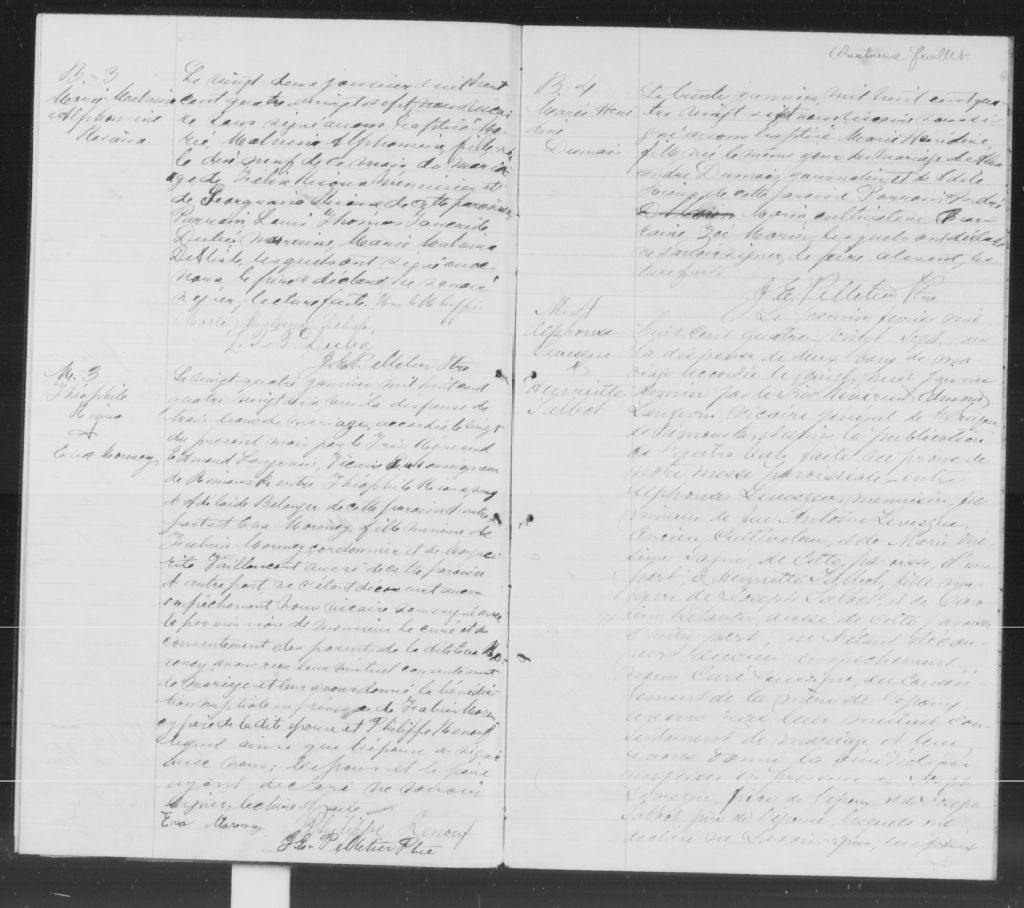 B. 3
Marie Malvina
Alphonsine
Rioux
Le vingt deux janvier mil huit
cent quatre vingt sept nous vicai
re sous signé avons baptisé Ma
rie Malvina Alphonsine, fille né
le dix neuf de ce mois du mari
age de Félix Rioux menuisier et
de Georgianna Rioux de cette paroisse
Parrain Louis Thomas
Dubé marraine, Marie Malvina
Delisle, lesquels ont signé avec
nous, le père a déclaré ne savoir
signer, lecture faite.
Marie Malvina Delisle
L. T. Dubé
J. E. Pelletier Ptre
M. 3
Théophile
Rioux
&
Eva Morency
Le vingt quatre janvier mil huit cent
quatre vingt sept vu la dispense de
trois bans de mariage, accordée le vingt
du présent mois par le Très Révérend
Edmond Langevin, Vicaire
de Rimouski entre Théophile Rioux,
et Adelaide Belanger de cette paroisse d'une
part et Eva Morency fille mineure de
Fabien Morency cordonnier et de Margue
rite Vaillancourt aussi de cette paroisse
d'autre part ne s'étant découvert aucun
empêchement nous vicaire soussigné avec
la permission de monsieur le curé et du
consentement des parents de la dite Eva Mo-
rency avons reçu leur mutuel consentement
de mariage et leur avons donné la bénédic
tion nuptiale en présence de Fabien Moren
cy père de la dite épouse et Philippe Renouf
lequel ainsi que l'épouse a signé
avec nous; l'époux et le père
ayant déclaré ne savoir
signer, lecture faite
Eva Morency Philippe Renouf
J. E. Pelletier Ptre
Quatrième feuillet
B. 4
Marie Hen
dine
Dumais
Le trente janvier, mil huit cent qua
tre vingt sept nous vicaire soussi
gné avons baptisé Marie
fille née le même jour du mariage de
andre Dumais journalier et de Adèle
Rioux de cette paroisse Parrain André
Morin cultivateur Mar
raine Zoé Morin lesquels ont déclaré
ne savoir signer, le père absent, lec
ture faite
J. E. Pelletier Ptre
M. 4
Alphonse
Levesque
&
Henriette
Talbot
Le premier février mil
huit cent quatre vingt sept, vu
la dispense de deux bans de ma
riage accordée le vingt huit janvier
dernier par le Très Révérend Edmond
Langevin, Vicaire général de
de Rimouski, depuis la publication
de l'autre ban faite au prône de
notre messe paroissiale, entre
Alphonse Levesque, menuisier, fils
mineur de feu Antoine Levesque,
ancien cultivateur, et de Marie
Gagné, de cette paroisse, d'une
part, & Henriette Talbot, fille ma
jeure de Joseph Talbot, et de Caro
line Bélanger aussi de cette paroisse
d'autre part; ne s'étant décou
vert aucun empêchement,
nous Curé soussigné, du consen
tement de la mère de l'époux
avons reçu leur mutuel con
sentement de mariage et leur
avons donné la bénédiction
nuptiale en présence de Joseph
Levesque, frère de l'époux, et de Joseph
Talbot père de l'épouse lesquels ont
déclaré ne savoir signer,